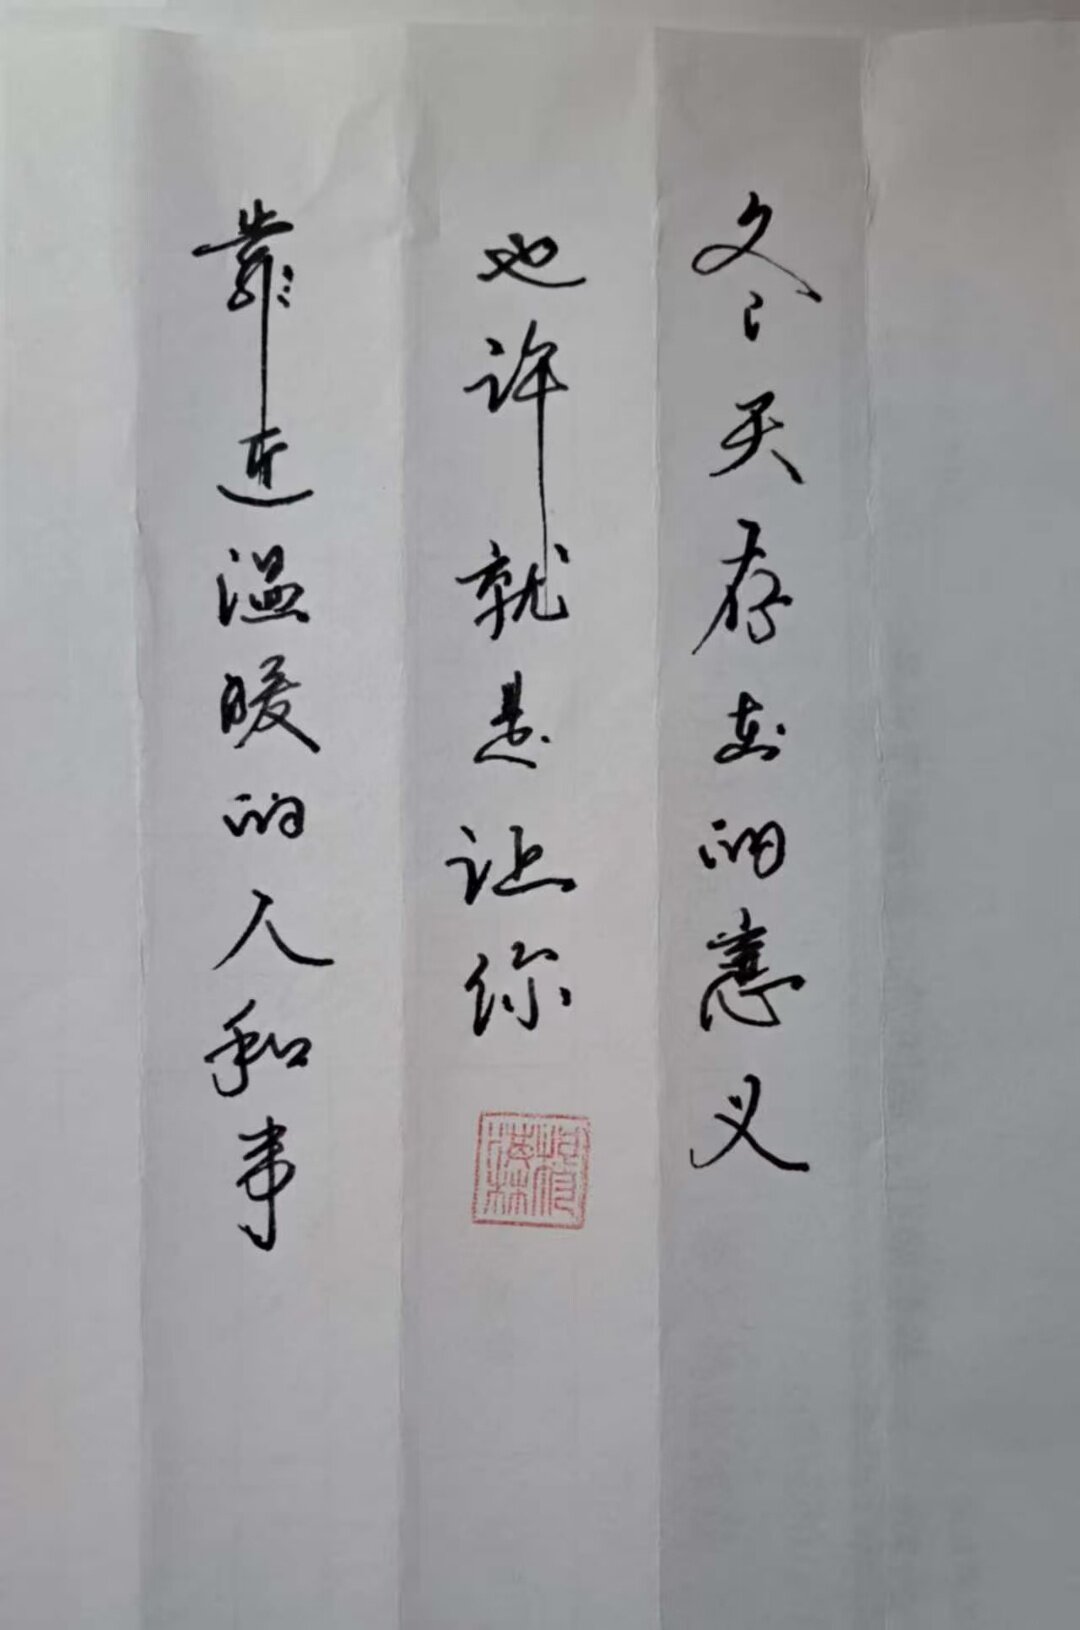 冬天存在的意义
也许就是让你
靠近温暖的人和事